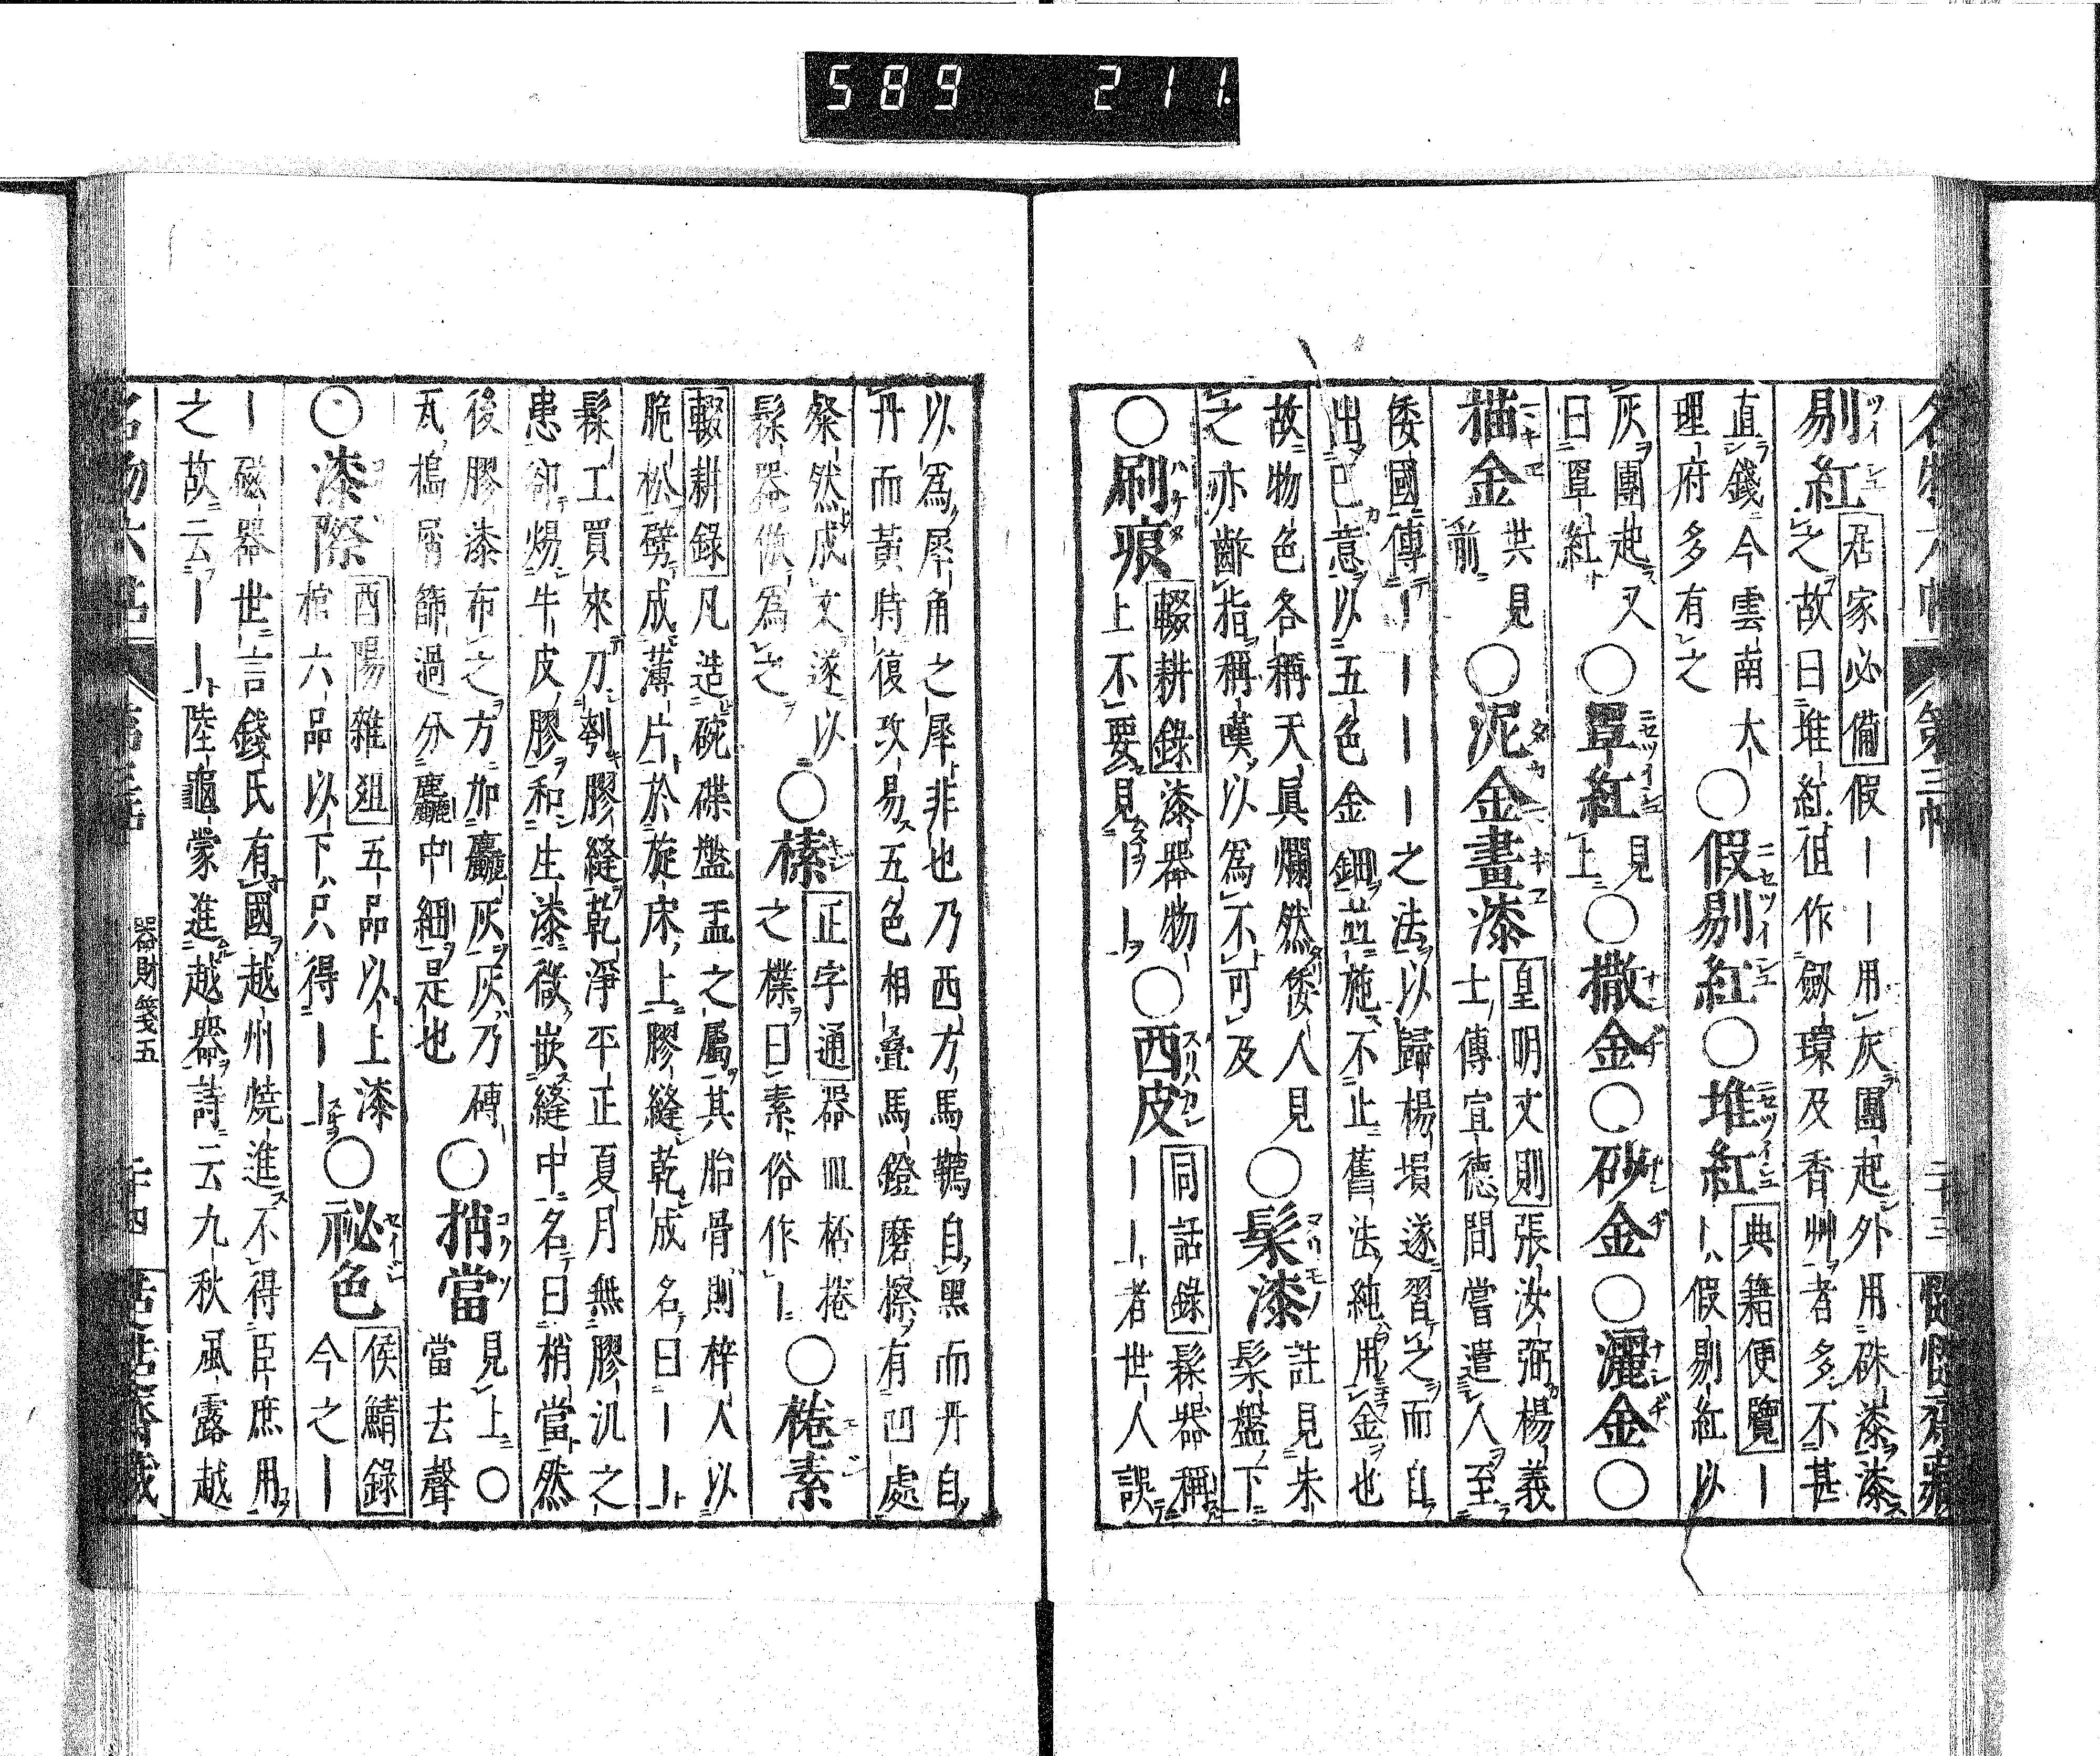 589 211
名物六帖 第三帖 二十三
剔紅 居家必備 假丨丨用灰團起外用硃漆漆
之故曰堆紅徂作劔環及香艸者多不甚
直錢今雲南大
理府多有之
○假剔紅○堆紅 典籍便覽 丨
丨假剔紅以
灰團起又
曰罩紅
○罩紅 見
上
○撒金○砂金○灑金○
描金 共見
前
○泥金畫漆 皇明文則 張汝弼楊義
士傳宣德間嘗遣人至
倭國傳丨丨丨丨之法以歸楊塤遂習之而自
出己意以五色金鈿並施不止舊法純用金也
故物色各稱天眞爛然倭人見
之亦齰指稱嘆以爲不可及
○髹漆 註見朱
髹盤下
○刷痕 輟耕錄 漆器物
上不要見丨丨
○西皮 同話錄 髹器稱
丨丨者世人誤
以爲犀角之犀非也乃西方馬韉自黑而丹自
丹而黃時復改易五色相疊馬鐙磨擦有凹處
粲然成文遂以
髹器倣爲之
○榡 正字通 器皿柸捲
之樸曰素俗作丨
○棬素
輟耕錄 凡造碗楪盤盂之屬其胎骨則梓人以
脆松劈成薄片於旋床上膠縫乾成名曰丨丨
髹工買來刀刳膠縫乾淨平正夏月無膠汎之
患卻煬牛皮膠和生漆微嵌縫中名曰梢當然
後膠漆布之方加麤灰灰乃磚
瓦搗屑篩過分麤中細是也
○捎當 見上○
當去聲
○漆際 酉陽雜俎 五品以上漆
棺六品以下只得丨丨
○祕色 侯鯖錄
今之丨
丨磁器世言錢氏有國越州燒進不得臣庶用
之故云丨丨陸龜蒙進越器詩云九秋風露越
器財箋五